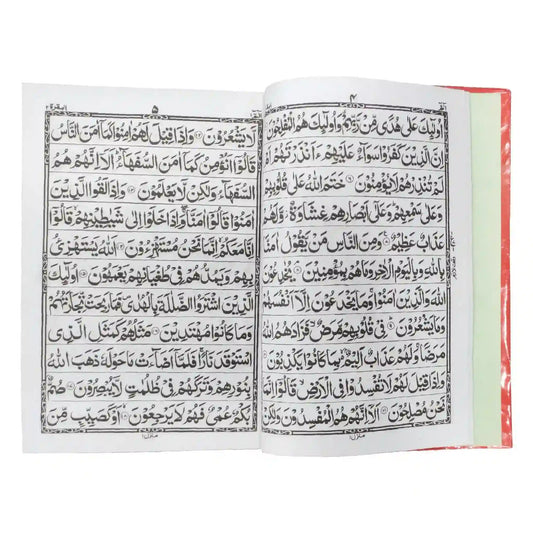 ۴
اُولٰٓئِكَ عَلٰى هُدًى مِّنْ رَّبِّهِمْ وَاُولٰٓئِكَ هُمُ الْمُفْلِحُوْنَ
اِنَّ الَّذِيْنَ كَفَرُوْا سَوَآءٌ عَلَيْهِمْ ءَاَنْذَرْتَهُمْ اَمْ
لَمْ تُنْذِرْهُمْ لَا يُؤْمِنُوْنَ خَتَمَ اللّٰهُ عَلٰى قُلُوْبِهِمْ
وَعَلٰى سَمْعِهِمْ وَعَلٰٓى اَبْصَارِهِمْ غِشَاوَةٌ وَّلَهُمْ
عَذَابٌ عَظِيْمٌ وَمِنَ النَّاسِ مَنْ يَّقُوْلُ اٰمَنَّا
بِاللّٰهِ وَبِالْيَوْمِ الْاٰخِرِ وَمَا هُمْ بِمُؤْمِنِيْنَ يُخٰدِعُوْنَ
اللّٰهَ وَالَّذِيْنَ اٰمَنُوْا وَمَا يَخْدَعُوْنَ اِلَّآ اَنْفُسَهُمْ
وَمَا يَشْعُرُوْنَ فِيْ قُلُوْبِهِمْ مَّرَضٌ فَزَادَهُمُ اللّٰهُ
مَرَضًا وَلَهُمْ عَذَابٌ اَلِيْمٌ بِمَا كَانُوْا يَكْذِبُوْنَ
وَاِذَا قِيْلَ لَهُمْ لَا تُفْسِدُوْا فِى الْاَرْضِ قَالُوْٓا اِنَّمَا
نَحْنُ مُصْلِحُوْنَ اَلَآ اِنَّهُمْ هُمُ الْمُفْسِدُوْنَ وَلٰكِنْ
منزل۱
۵
لَّا يَشْعُرُوْنَ ۱۲ وَاِذَا قِيْلَ لَهُمْ اٰمِنُوْا كَمَآ اٰمَنَ النَّاسُ
قَالُوْٓا اَنُؤْمِنُ كَمَآ اٰمَنَ السُّفَهَآءُ اَلَآ اِنَّهُمْ هُمُ
السُّفَهَآءُ وَلٰكِنْ لَّا يَعْلَمُوْنَ وَاِذَا لَقُوا الَّذِيْنَ
اٰمَنُوْا قَالُوْٓا اٰمَنَّا وَاِذَا خَلَوْا اِلٰى شَيٰطِيْنِهِمْ قَالُوْٓا
اِنَّا مَعَكُمْ اِنَّمَا نَحْنُ مُسْتَهْزِءُوْنَ اَللّٰهُ يَسْتَهْزِئُ
بِهِمْ وَيَمُدُّهُمْ فِيْ طُغْيَانِهِمْ يَعْمَهُوْنَ اُولٰٓئِكَ
الَّذِيْنَ اشْتَرَوُا الضَّلٰلَةَ بِالْهُدٰى فَمَا رَبِحَتْ تِّجَارَتُهُمْ
وَمَا كَانُوْا مُهْتَدِيْنَ مَثَلُهُمْ كَمَثَلِ الَّذِى
اسْتَوْقَدَ نَارًا فَلَمَّآ اَضَآءَتْ مَا حَوْلَهٗ ذَهَبَ اللّٰهُ
بِنُوْرِهِمْ وَتَرَكَهُمْ فِيْ ظُلُمٰتٍ لَّا يُبْصِرُوْنَ صُمٌّۢ
بُكْمٌ عُمْيٌ فَهُمْ لَا يَرْجِعُوْنَ اَوْ كَصَيِّبٍ مِّنَ
منزل۱